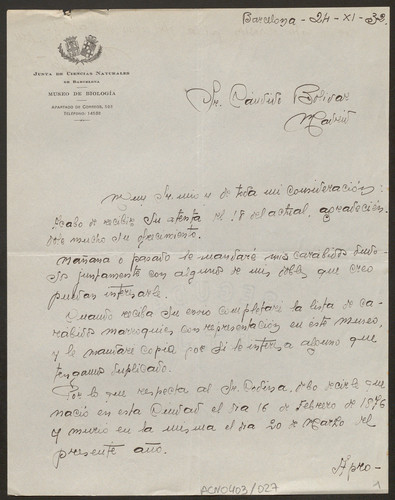 Barcelona - 24 - XI - 32.
Junta de Ciencias Naturales
de Barcelona
Museo de Biología
Apartado de Correos, 593
Teléfono 14593
Sr. Cándido Bolívar
Madrid
Muy Sr. mío y de toda mi consideración:
Acabo de recibir su atenta del 18 del actual, agradecién-
dole mucho su ofrecimiento.
Mañana o pasado le mandaré mis carábidos dudo-
sos juntamente con algunos de mis dobles que creo
puedan interesarle.
Cuando reciba su envío completaré la lista de ca-
rábidos marroquíes con representación en este museo,
y le mandaré copia por si le interesa alguno que
tengamos duplicado.
Por lo que respecta al Sr. Codina debo decirle que
nació en esta Ciudad el día 16 de Febrero de 1876
y murió en la misma el día 20 de Marzo del
presente año.
Apro-
ACN0403/027
1